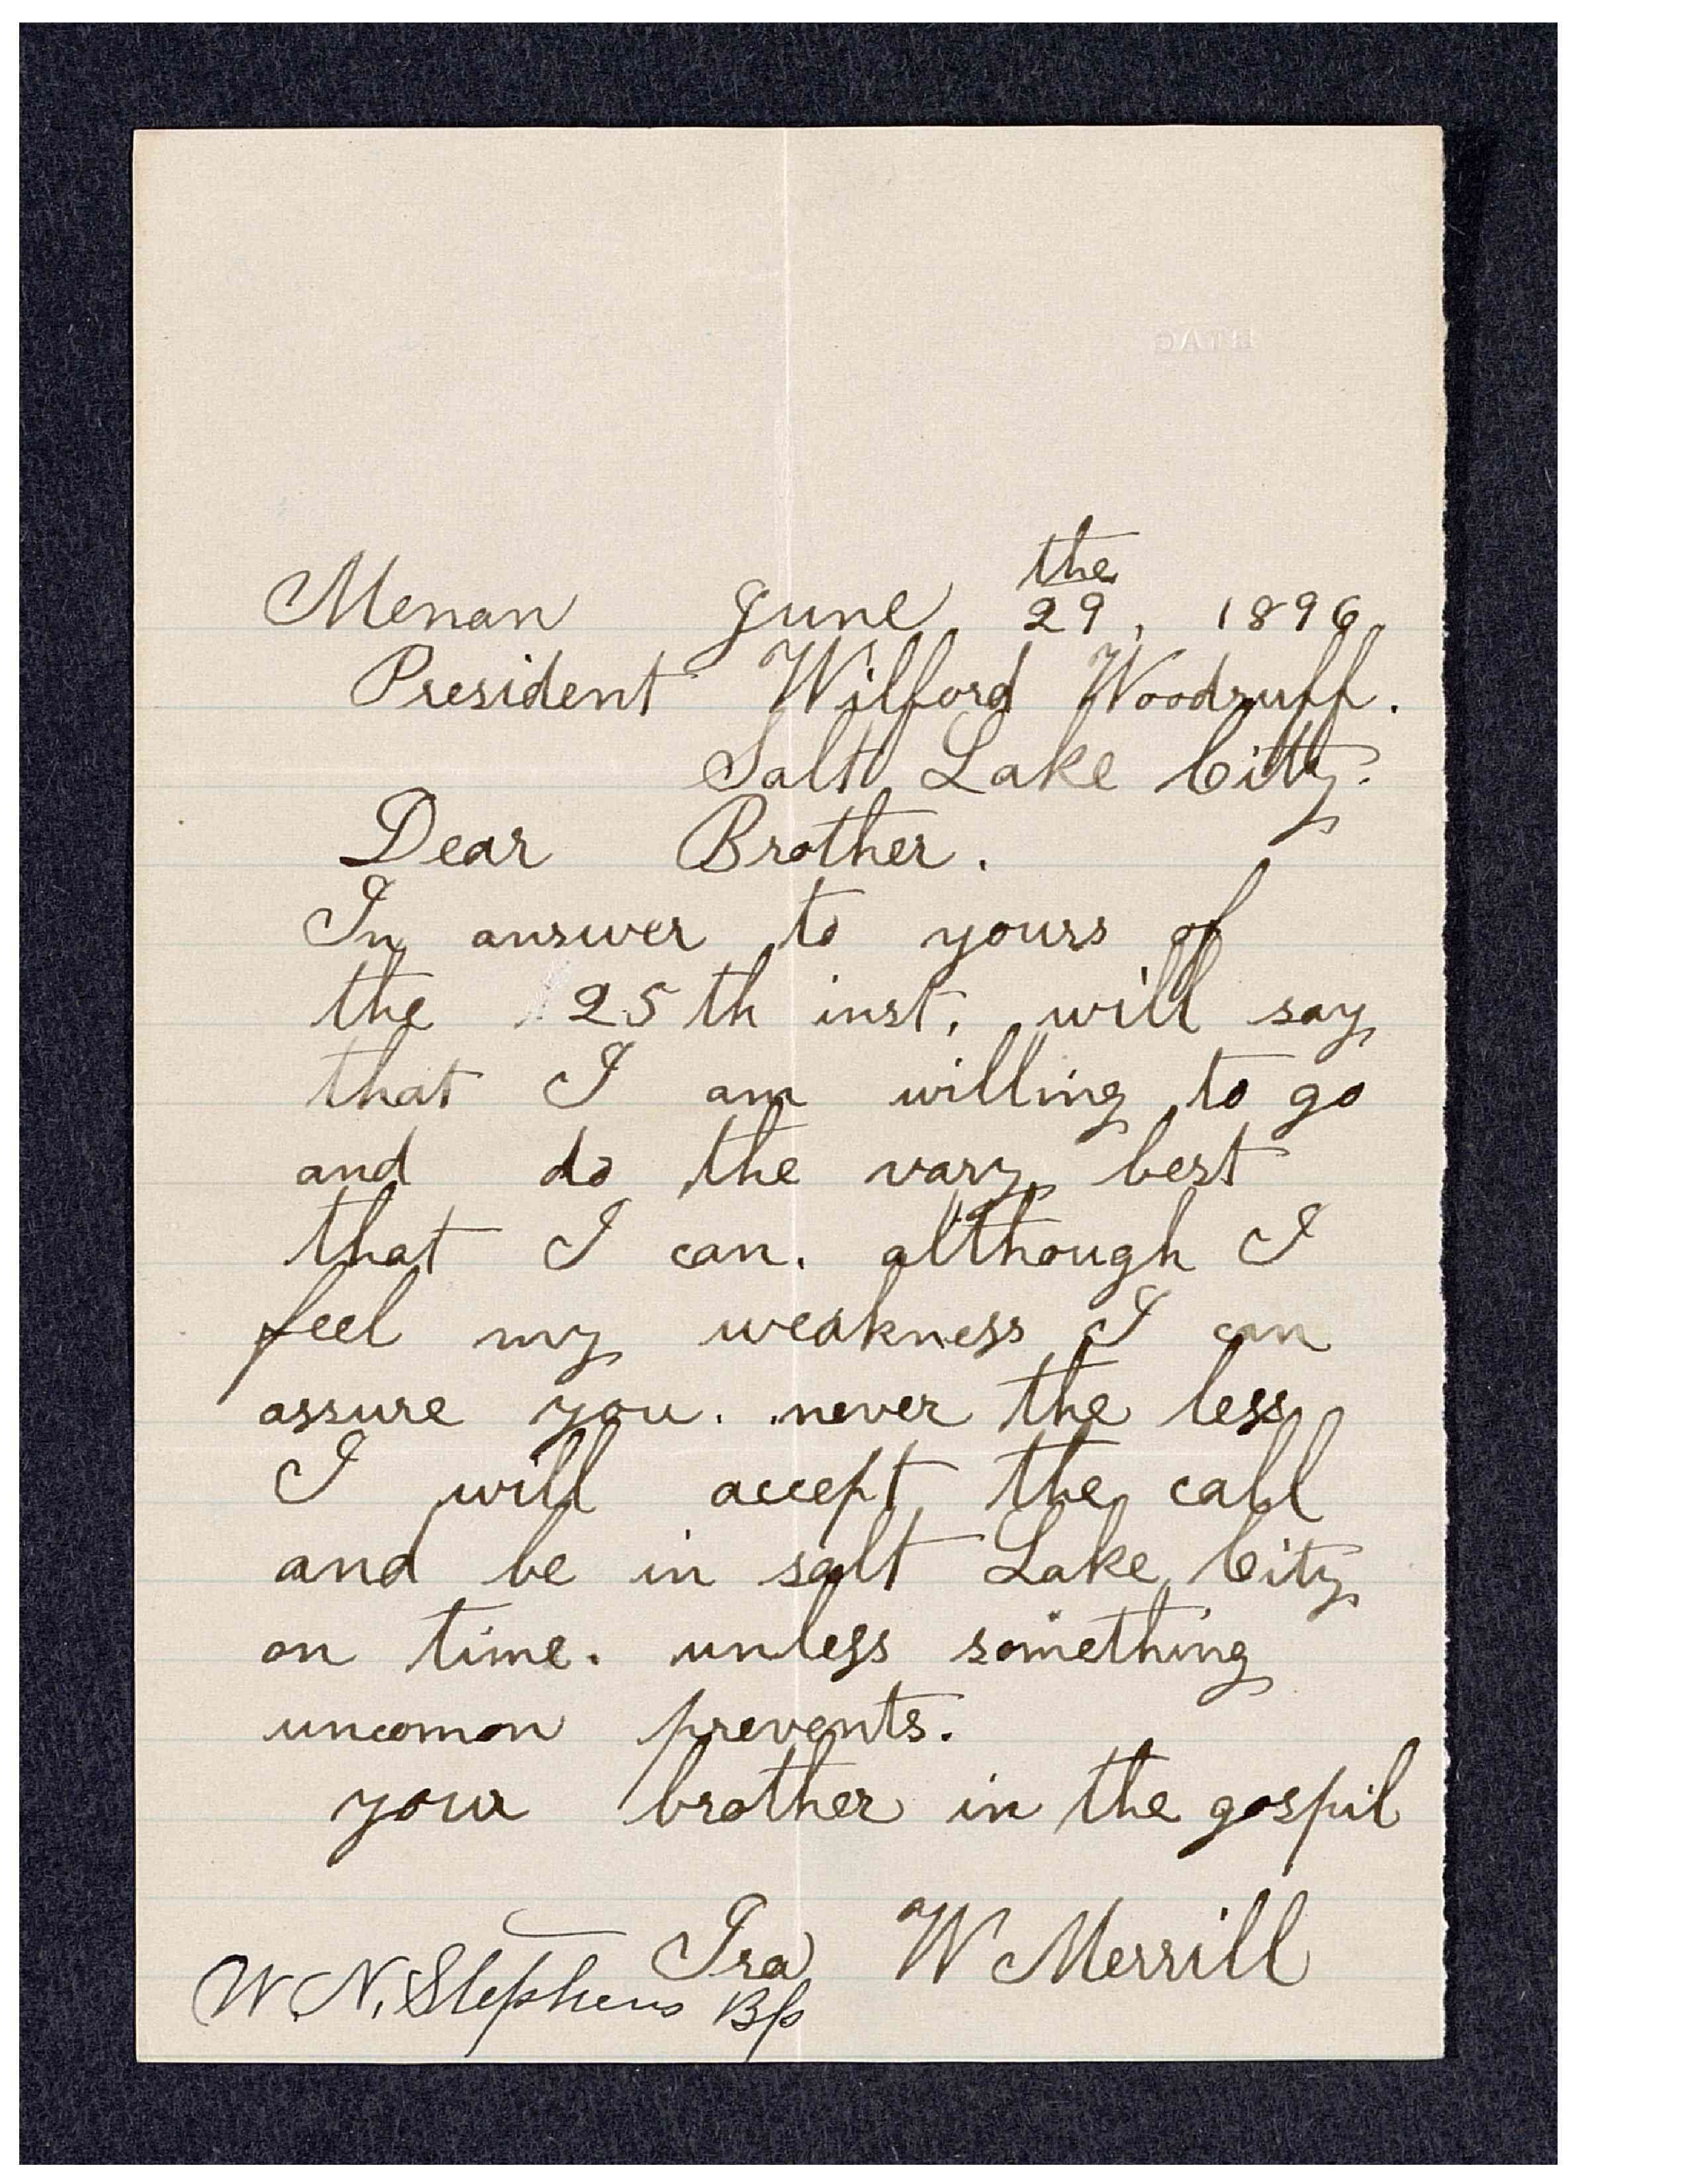 Menan June the 29, 1896.
President Wilford Woodruff.
Salt Lake City.
Dear Brother.
In answer to yours of
the 25th inst. will say
that I am willing to go
and do the vary best
that I can. although I
feel my weakness I can
assure you. never the less
I will accept the call
and be in salt Lake City
on time. unless something
uncomon prevents.
your brother in the gospil
Ira W Merrill
W. N. Stephens Bp